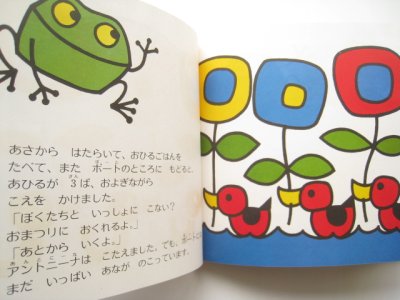 あさから はたらいて、おひるごはんを
たべて、また ボートのところに もどると、
あひるが 3ば、およぎながら
こえを かけました。
「ぼくたちと いっしょに こない？
おまつりに おくれるよ。」
「あとから いくよ。」
アントニーナは こたえました。でも、ボートに
まだ いっぱい あなが のこっています。